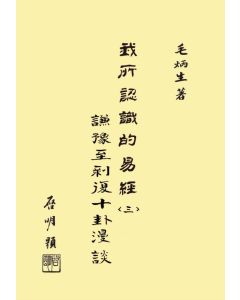 毛炳生著
我所認識的易經
〈三〉
謙豫至剝復十卦漫談
啓明題